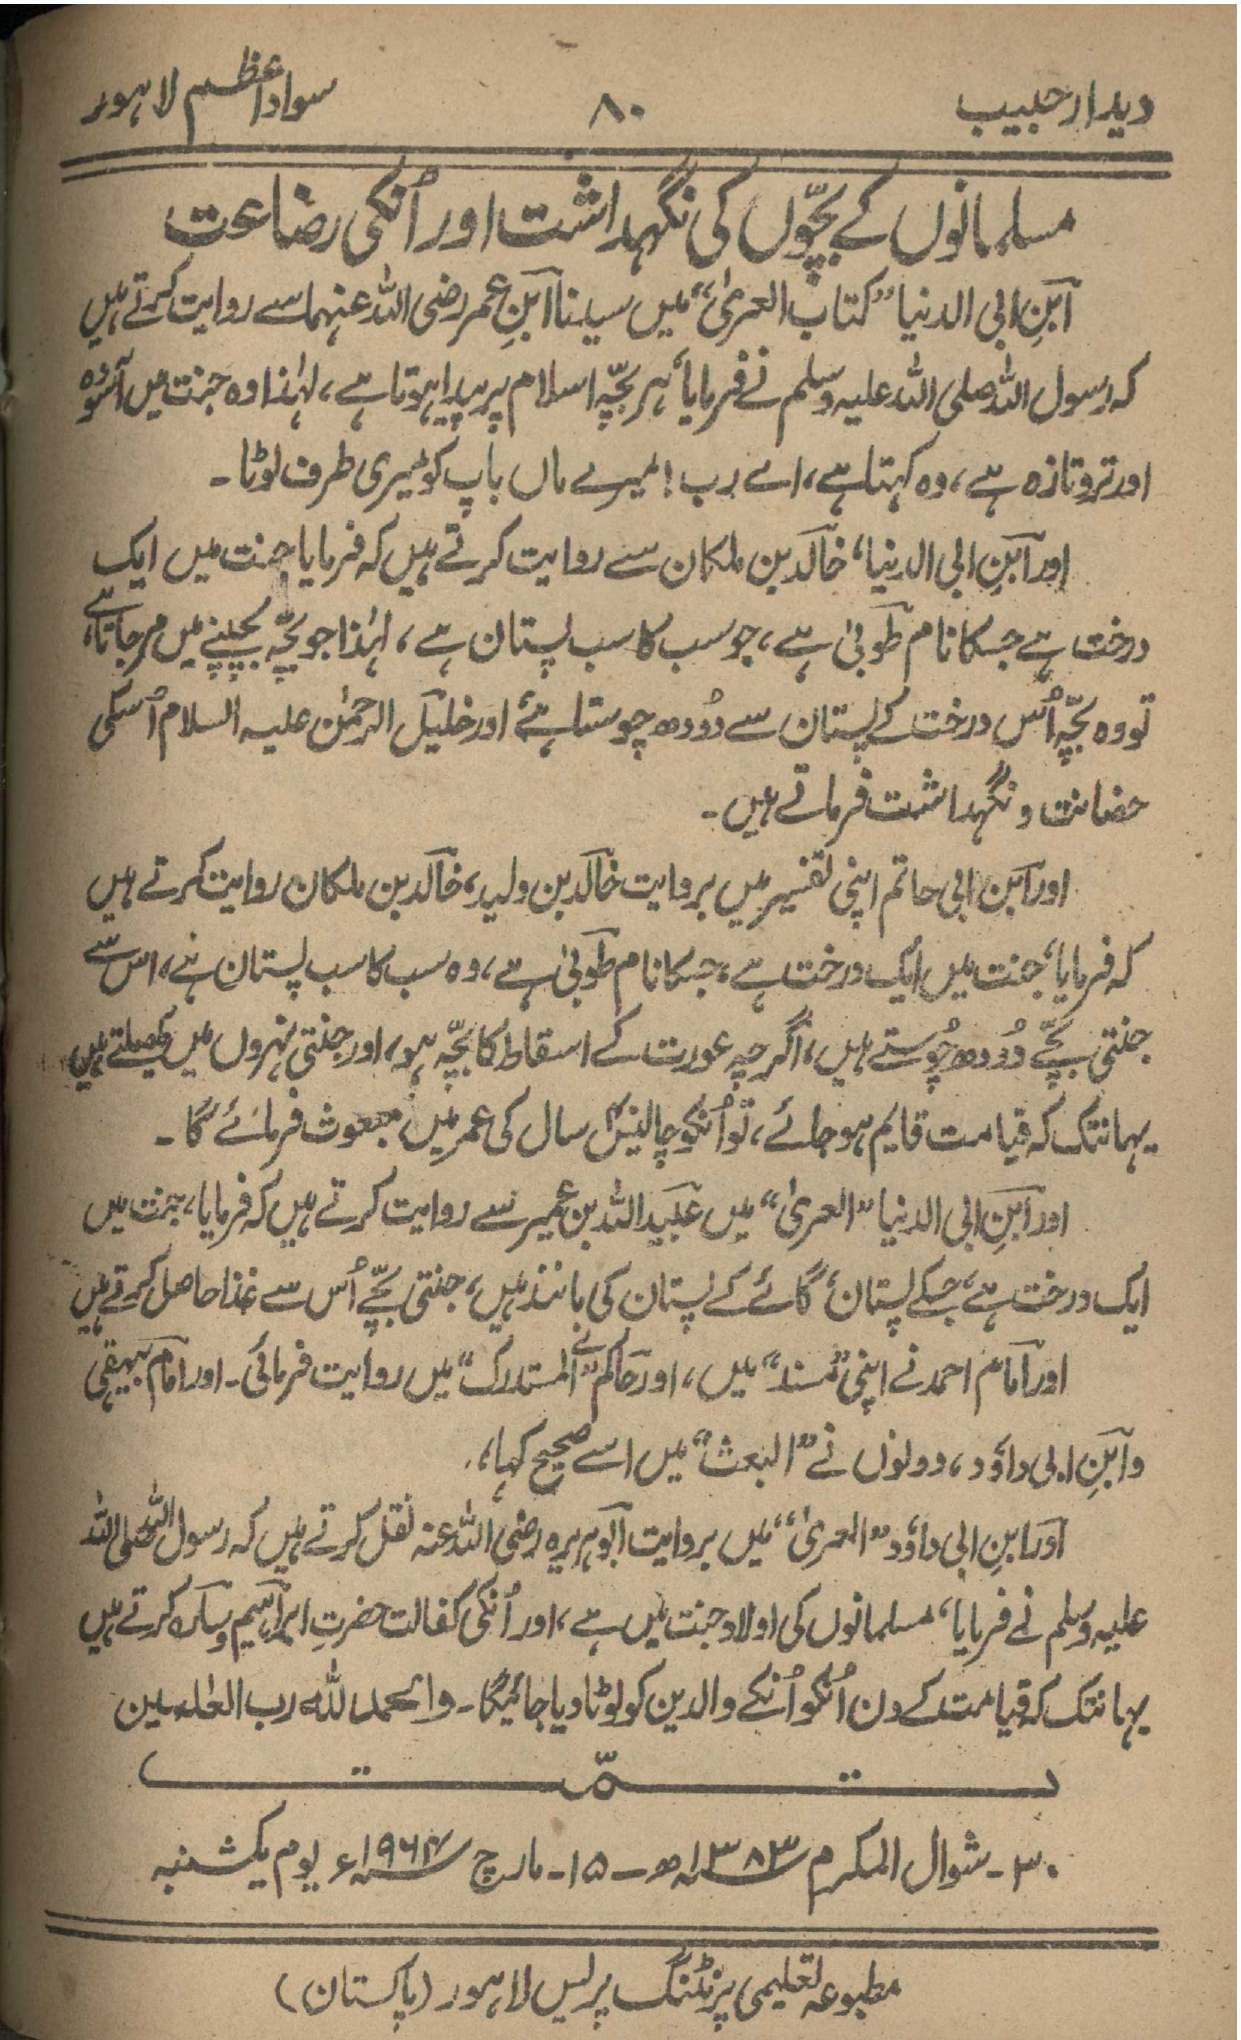 دیدار حبیب
۸۰
سواد اعظم لاہور
مسلمانوں کے بچّوں کی نگہداشت اور اُنکی رضاعت
ابنِ ابی الدنیا ”کتاب العزیٰ“ میں سیدنا ابنِ عمر رضی اللہ عنہما سے روایت کرتے ہیں
کہ رسول اللہ صلی اللہ علیہ وسلم نے فرمایا، ہر بچّہ اسلام پر پیدا ہوتا ہے، لہٰذا وہ جنت میں آسودہ
اور تروتازہ ہے، وہ کہتا ہے، اے رب! میرے ماں باپ کو میری طرف لوٹا۔
اور ابنِ ابی الدنیا، خالد بن ملکان سے روایت کرتے ہیں کہ فرمایا جنت میں ایک
درخت ہے جسکا نام طوبیٰ ہے، جو سب کا سب پستان ہے، لہٰذا جو بچّہ بچپنے میں مر جاتا ہے،
تو وہ بچّہ اُس درخت کے پستان سے دُودھ چوستا ہے اور خلیل الرحمٰن علیہ السلام اُسکی
حضانت و نگہداشت فرماتے ہیں۔
اور ابن ابی حاتم اپنی تفسیر میں بروایت خالد بن ولید، خالد بن ملکان روایت کرتے ہیں
کہ فرمایا، جنت میں ایک درخت ہے، جسکا نام طوبیٰ ہے، وہ سب کا سب پستان ہے، اس سے
جنتی بچّے دُودھ چُوستے ہیں، اگرچہ عورت کے اسقاط کا بچّہ ہو، اور جنتی نہروں میں کھیلتے ہیں
یہانتک کہ قیامت قایم ہو جائے، تو اُنکو چالیس سال کی عمر میں مبعوث فرمائے گا۔
اور ابنِ ابی الدنیا ”العزیٰ“ میں عبید اللہ بن عمیر سے روایت کرتے ہیں کہ فرمایا، جنت میں
ایک درخت ہے، جسکے پستان، گائے کے پستان کی مانند ہیں، جنتی بچّے اُس سے غذا حاصل کرتے ہیں
اور امام احمد نے اپنی ”مسند“ میں، اور حاکم نے ”المستدرک“ میں روایت فرمائی۔ اور امام بیہقی
و ابنِ ابی داؤد، دونوں نے ”البعث“ میں اسے صحیح کہا،
اور ابنِ ابی داؤد ”العزیٰ“ میں بروایت ابوہریرہ رضی اللہ عنہ نقل کرتے ہیں کہ رسول اللہ صلی اللہ
علیہ وسلم نے فرمایا، مسلمانوں کی اولاد جنت میں ہے، اور اُنکی کفالت حضرتِ ابراہیم وسارہ کرتے ہیں
یہانتک کہ قیامت کے دن اُنکو اُنکے والدین کو لوٹا دیا جائیگا۔ والحمد للہ رب العٰلمین
تمّت
۳۰۔ شوال المکرم ۱۳۸۳ھ ۔ ۱۵۔ مارچ ۱۹۶۴ء یوم یکشنبہ
مطبوعہ تعلیمی پرنٹنگ پریس لاہور (پاکستان)